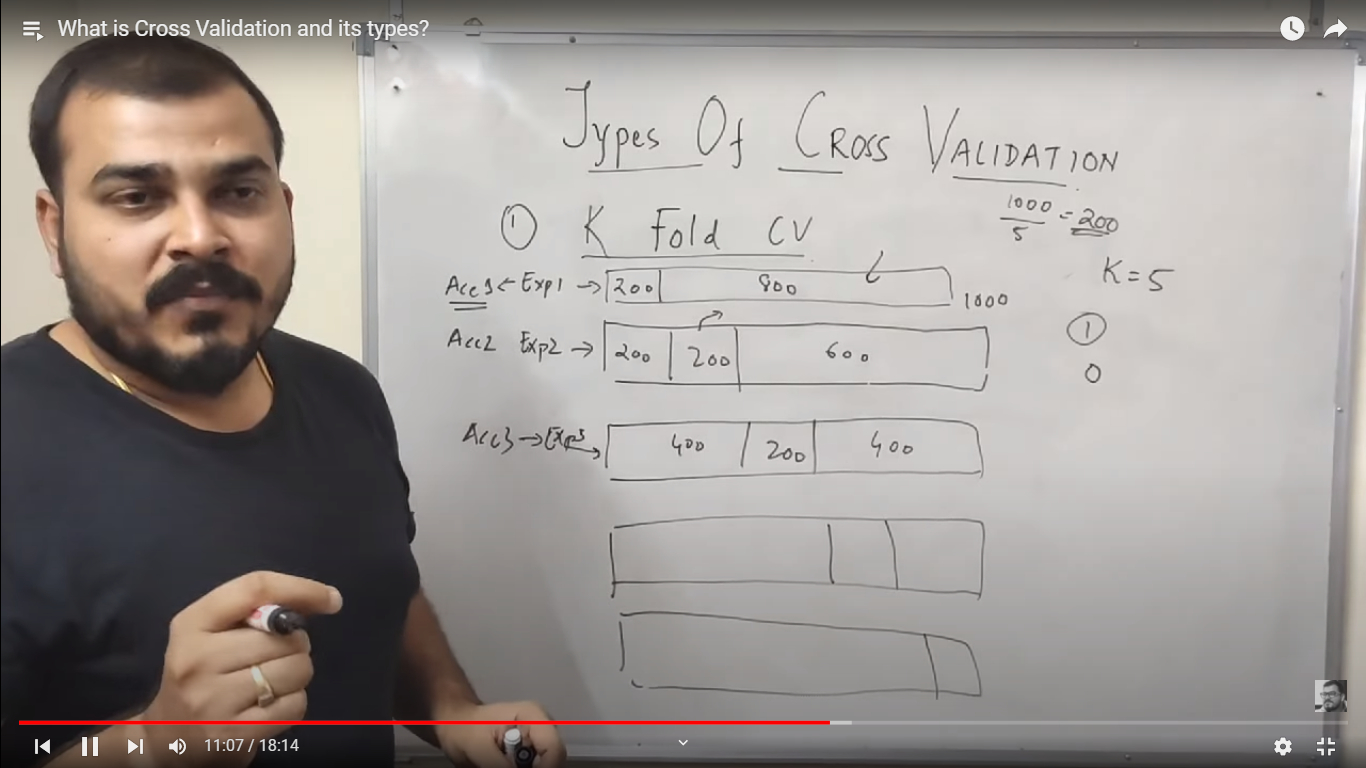 What is Cross Validation and its types?
Types Of Cross Validation
1000/5 = 200
① K Fold CV
K = 5
Acc1 ← Exp1 → 200 800 1000
①
Acc2 Exp2 → 200 200 600
0
Acc3 → Exp3 → 400 200 400
11:07 / 18:14